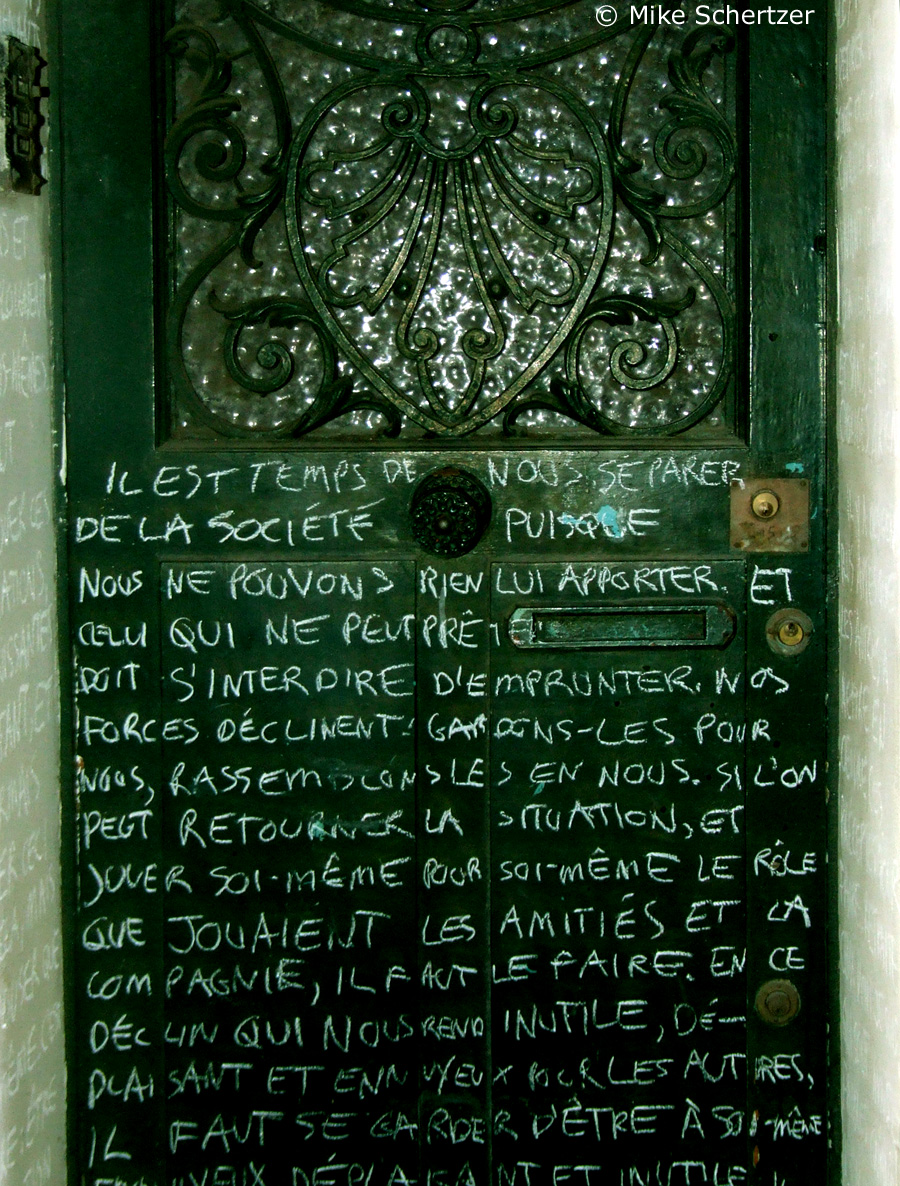 © Mike Schertzer
IL EST TEMPS DE NOUS SÉPARER
DE LA SOCIÉTÉ PUISQUE
NOUS NE POUVONS RIEN LUI APPORTER. ET
CELUI QUI NE PEUT PRÊTER
DOIT S'INTERDIRE D'EMPRUNTER. NOS
FORCES DÉCLINENT: GARDONS-LES POUR
NOUS, RASSEMBLONS LES EN NOUS. SI L'ON
PEUT RETOURNER LA SITUATION, ET
JOUER SOI-MÊME POUR SOI-MÊME LE RÔLE
QUE JOUAIENT LES AMITIÉS ET LA
COMPAGNIE, IL FAUT LE FAIRE. EN CE
DÉCLIN QUI NOUS REND INUTILE, DÉ-
PLAISANT ET ENNUYEUX POUR LES AUTRES,
IL FAUT SE GARDER D'ÊTRE À SOI-MÊME
ENNUYEUX DÉPLAISANT ET INUTILE